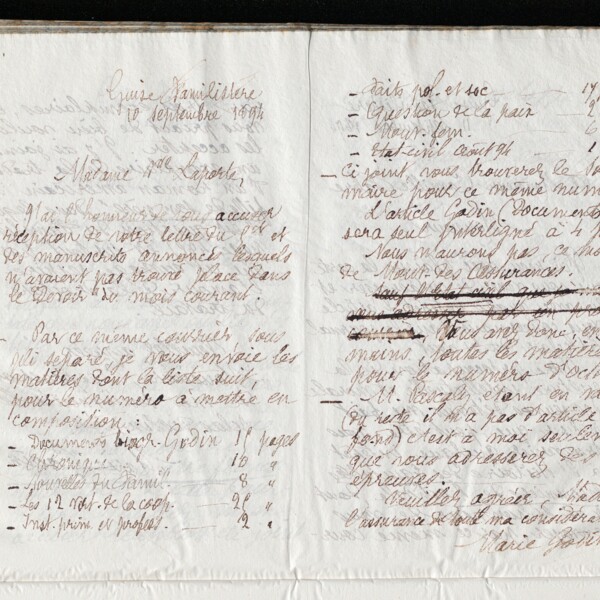 Guise Familistère
10 septembre 1894
Madame Vve Laporte,
J'ai l'honneur de vous accuser
réception de votre lettre du 8 et
des manuscrits annoncés lesquels
n'avaient pas trouvé place dans
le Devoir du mois courant.
Par ce même courrier, sous
pli séparé, je vous envoie les
matières dont la liste suit,
pour le numéro à mettre en
composition :
- Documents biogr. Godin 15 pages
- Chronique 10 "
- Nouvelles du Famil. 8 "
- Les 12 vert. de la coop. - 25 "
- Inst. prim. et profess. - 2 "
- Faits pol. et soc - 17
- Question de la paix - 2
- Mouv. fém. - 6
- Etat-civil août 94 - 1
- Ci joint, vous trouverez le So
maire pour ce même numé
L'article Godin (Documents
sera seul interligné à 4 p
Nous n'aurons pas, ce mo
de Mouv. des Assurances.
Vous avez donc, en
mains, toutes les matière
pour le numéro d'Oct
- M. Pascaly étant en
(du reste il n'a pas d'article
fond) c'est à moi seule
que vous adresserez des
épreuves.
Veuillez agréer
l'assurance de toute ma considéra
Marie Godin